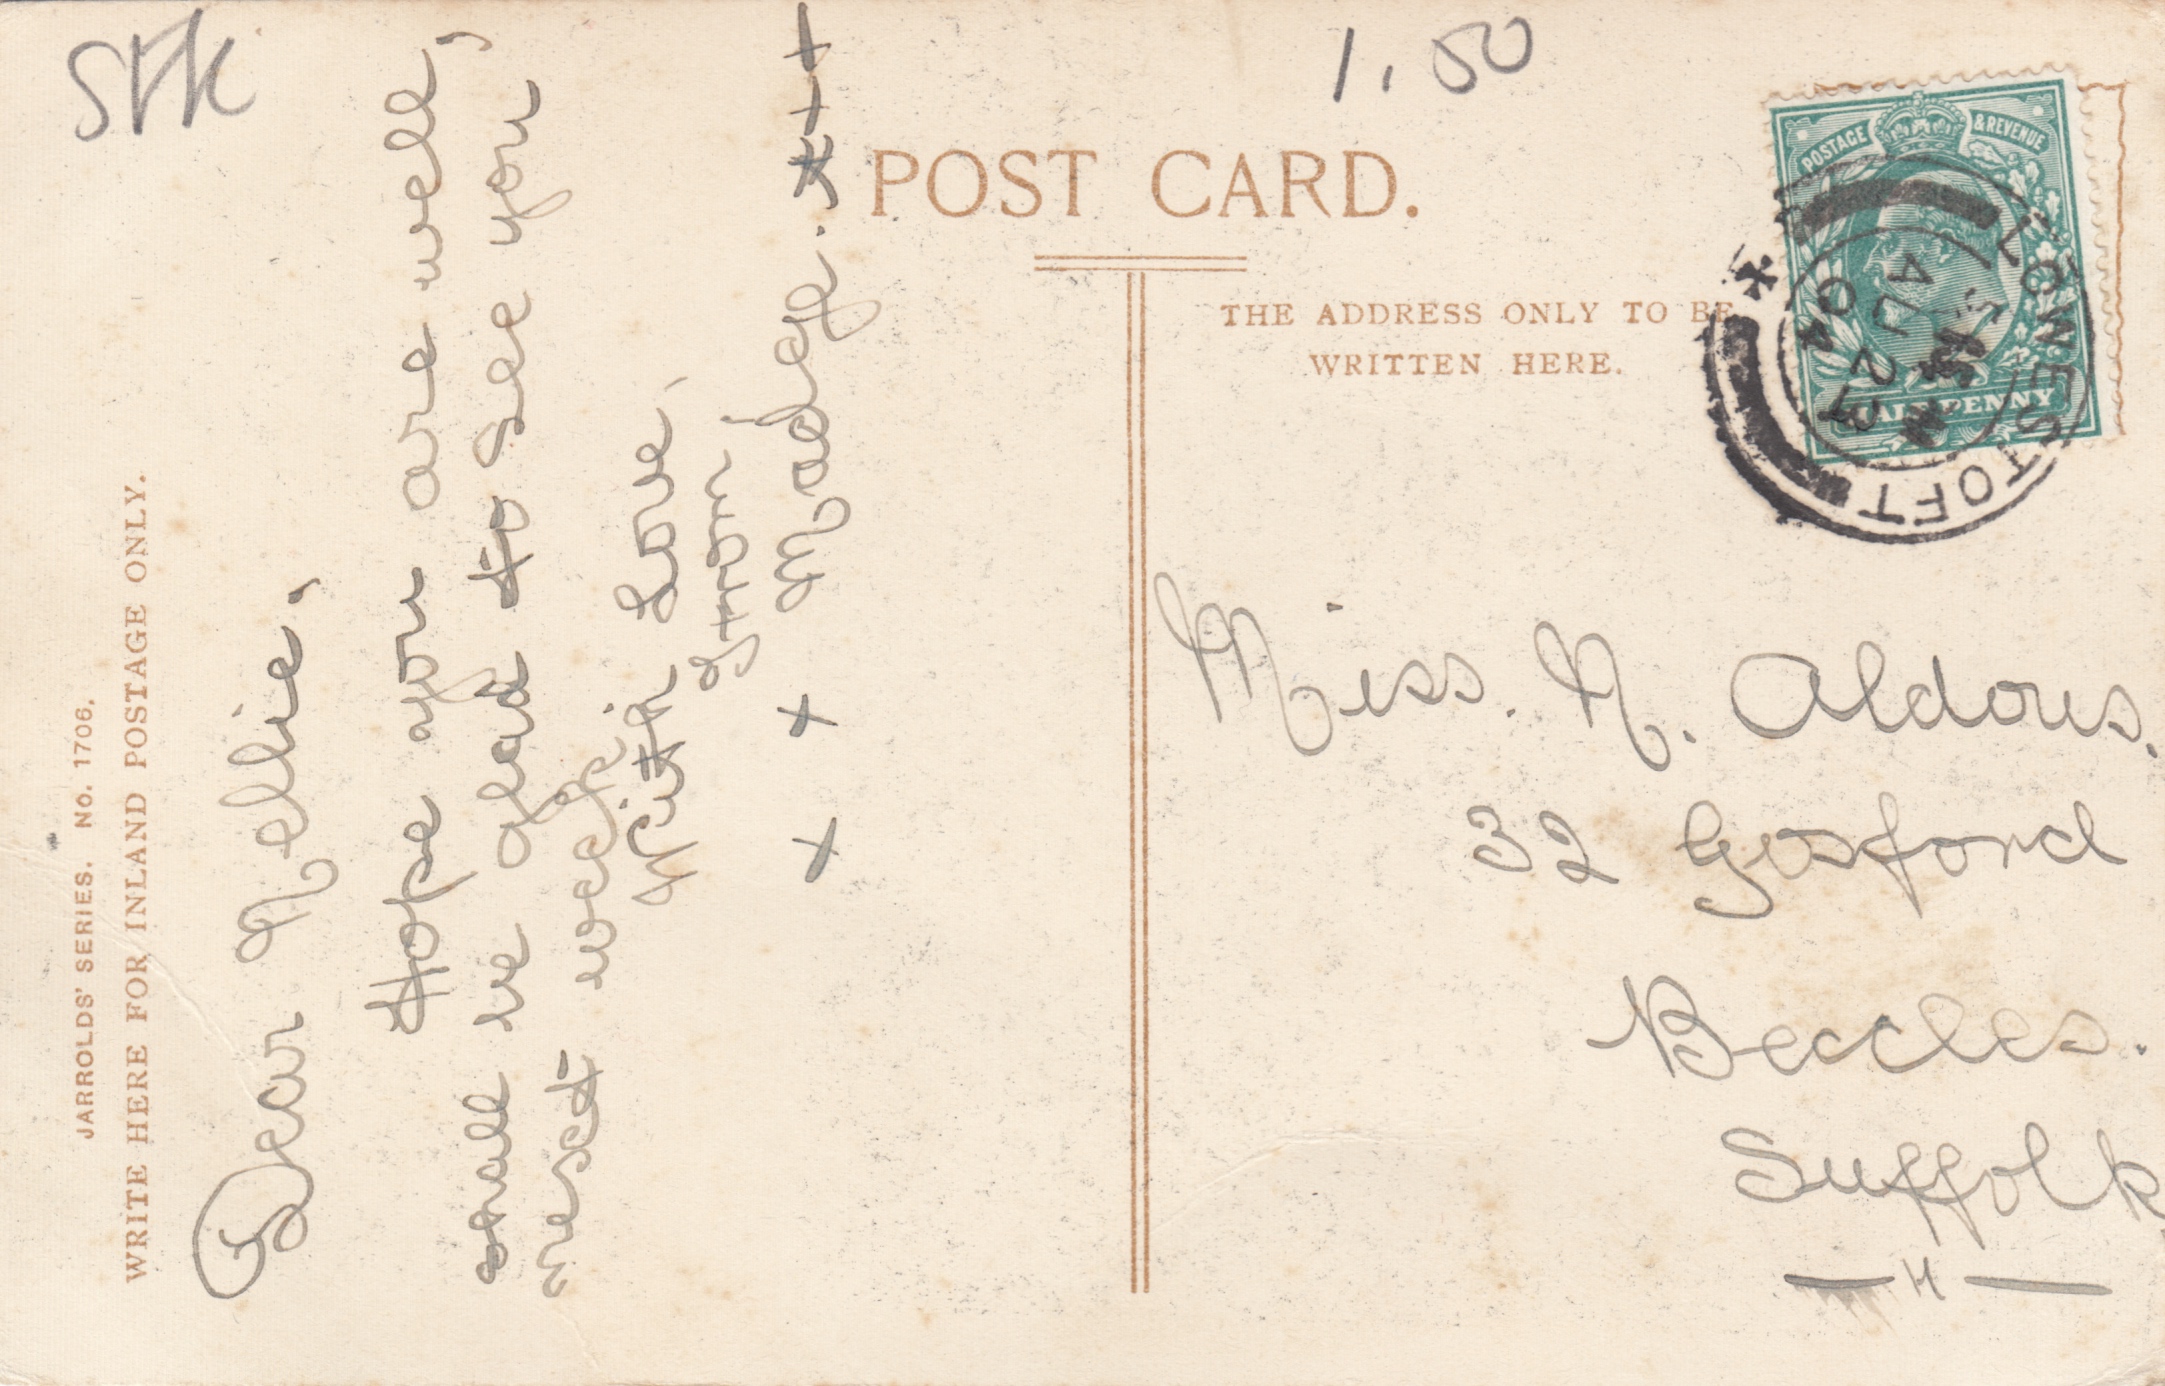 SFK
1.50
POST CARD.
THE ADDRESS ONLY TO BE
WRITTEN HERE.
POSTAGE & REVENUE
HALFPENNY
LOWESTOFT
AU 27
04
JARROLDS' SERIES. No. 1706.
WRITE HERE FOR INLAND POSTAGE ONLY.
Dear Nellie,
Hope you are well,
shall be glad to see you
next week,
With Love,
from
x x Madge. x x x
Miss. N. Aldous.
32 Gosford
Beccles.
Suffolk